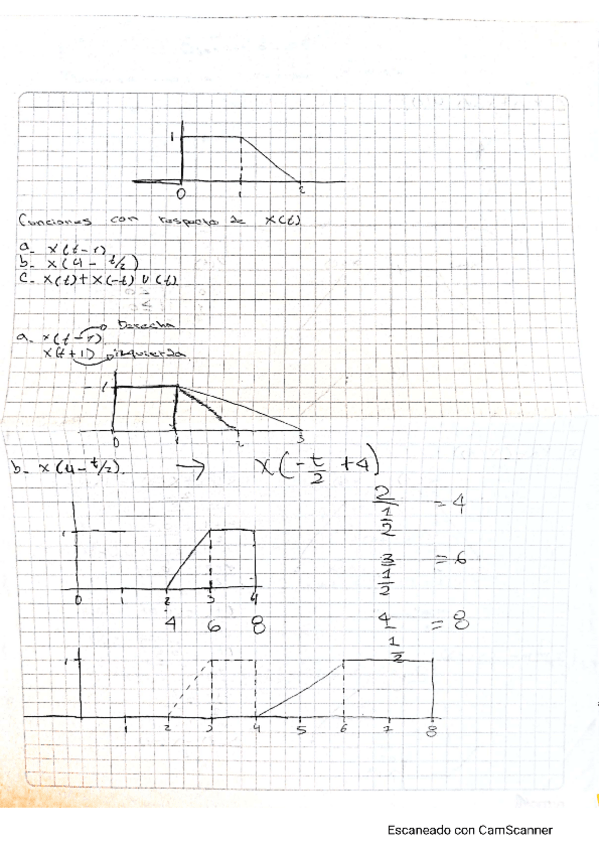 1
0 1 2
Cunciones con respecto de x(t)
a- x(t-1)
b- x(4- t/2)
c- x(t)+x(-t) u(t)
Derecha
a. x(t-1)
x(t+1) izquierda
1
0 1 2 3
b- x(4-t/2). → x(-t/2 +4)
2/(1/2) = 4
3/(1/2) = 6
4/(1/2) = 8
1
0 1 2 3 4
4 6 8
1
1 2 3 4 5 6 7 8
Escaneado con CamScanner